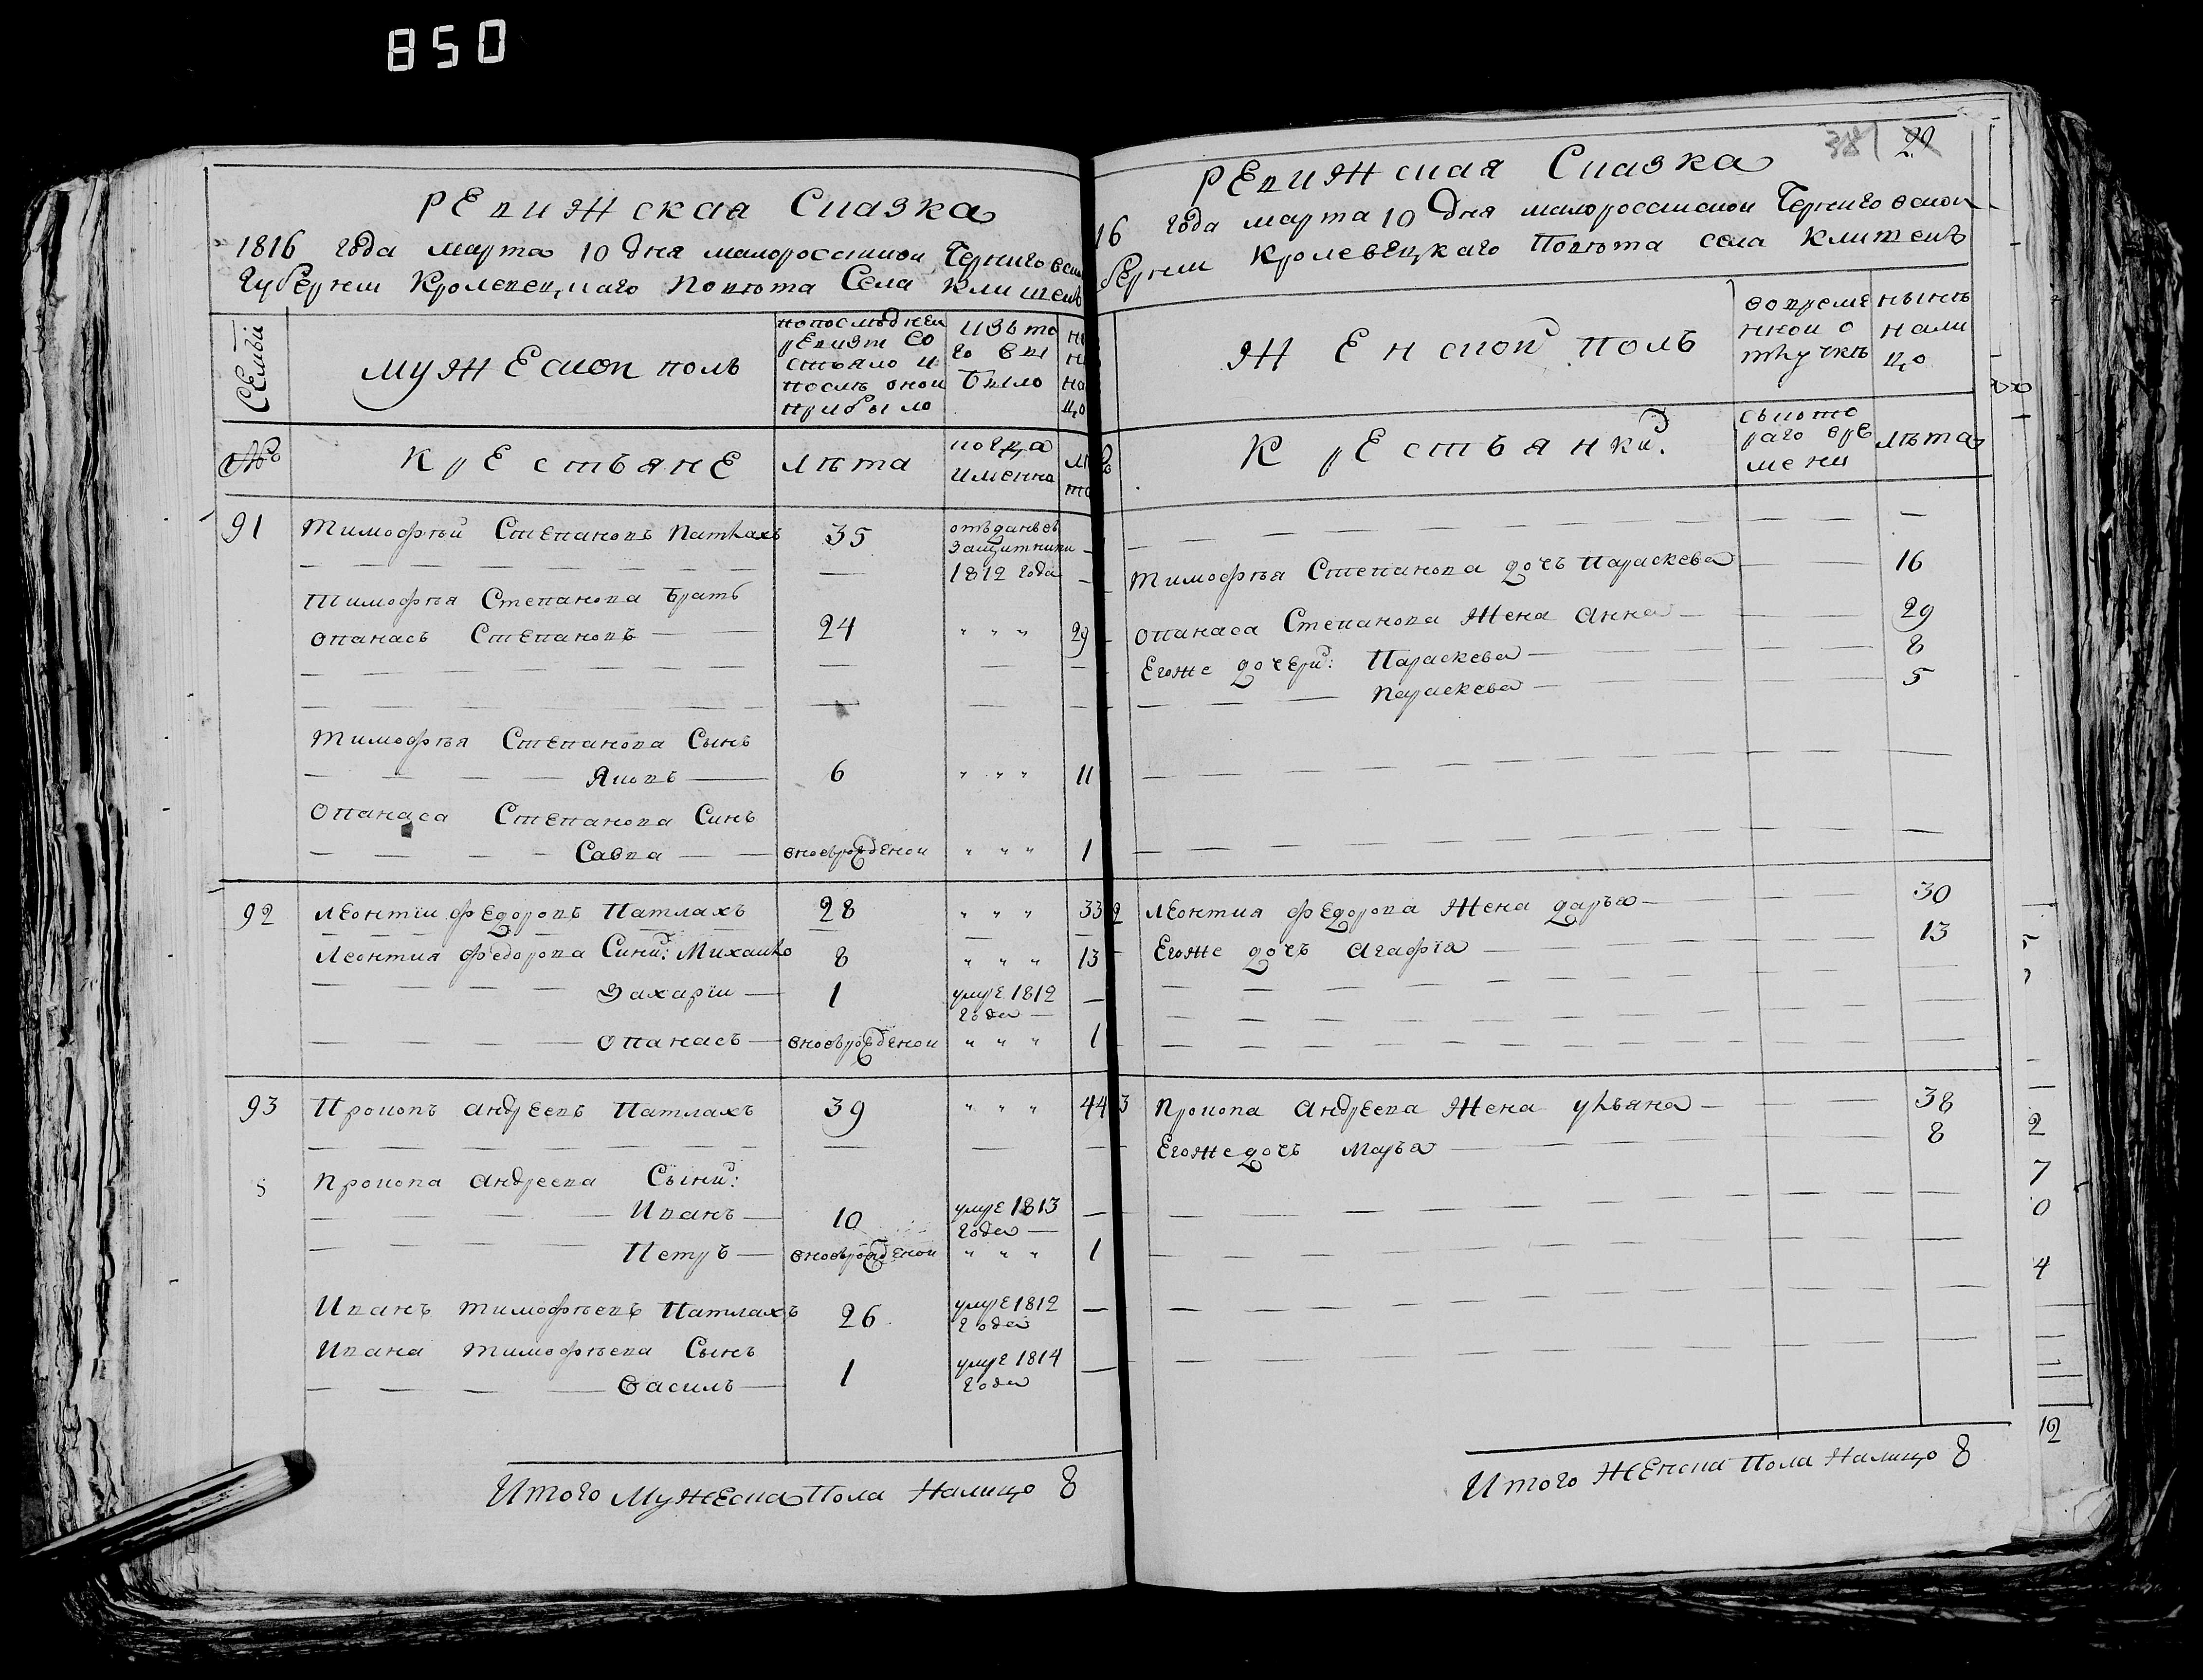 850
Ревижская Сказка
1816 года марта 10 дня малоросснои Чернигов
Губернии Кролевецкаго Повѣта Села Клишекъ
Семьи
Мужескои полъ
по последнеи
ревизiи со
стояло и
послѣ онои
прибыло
Изъ то
го вы
было
№
Крестьяне
лѣта
когда
именно
91 Тимофѣй Степановъ Патлахъ 35 отъданъ въ
защитники
1812 года
Тимофѣя Степанова Братъ
Опанасъ Степановъ 24 " " " 29
Тимофѣя Степанова Сынъ
Яковъ 6 " " " 11
Опанаса Степанова Синъ
Савва вноврожденои " " " 1
92 Леонтiи Федоровъ Патлахъ 28 " " " 33
Леонтия Федорова Сини: Михаило 8 " " " 13
Захарiи 1 умре 1812
года
Опанасъ вноврожденои " " " 1
93 Прокопъ Андреевъ Патлахъ 39 " " " 44
Прокопа Андреева Сыни:
Иванъ 10 умре 1813
года
Петръ вноврожденои " " " 1
Иванъ Тимофѣевъ Патлахъ 26 умре 1812
года
Ивана Тимофѣева Сынъ
Василь 1 умре 1814
года
Итого Мужеска Пола Налицо 8
381 29
Ревижская Сказка
16 года марта 10 дня малороссискои Черниговскои
бернии Кролевецкаго Повѣта села Клишекъ
Женскои полъ
во време
ннои о
тлучкѣ
нынѣ
нали
цо
Крестьянки.
съ кото
раго вре
мени
лѣта
Тимофѣя Степанова дочъ Параскева 16
Опанаса Степанова Жена Анна 29
Егоже дочери: Параскева 8
Параскева 5
2 Леонтия Федорова Жена Дарья 30
Егоже дочъ Агафiя 13
3 Прокопа Андреева Жена Ульяна 38
Егоже дочъ Марья 8
Итого Женска Пола Налицо 8
2
7
0
4
12